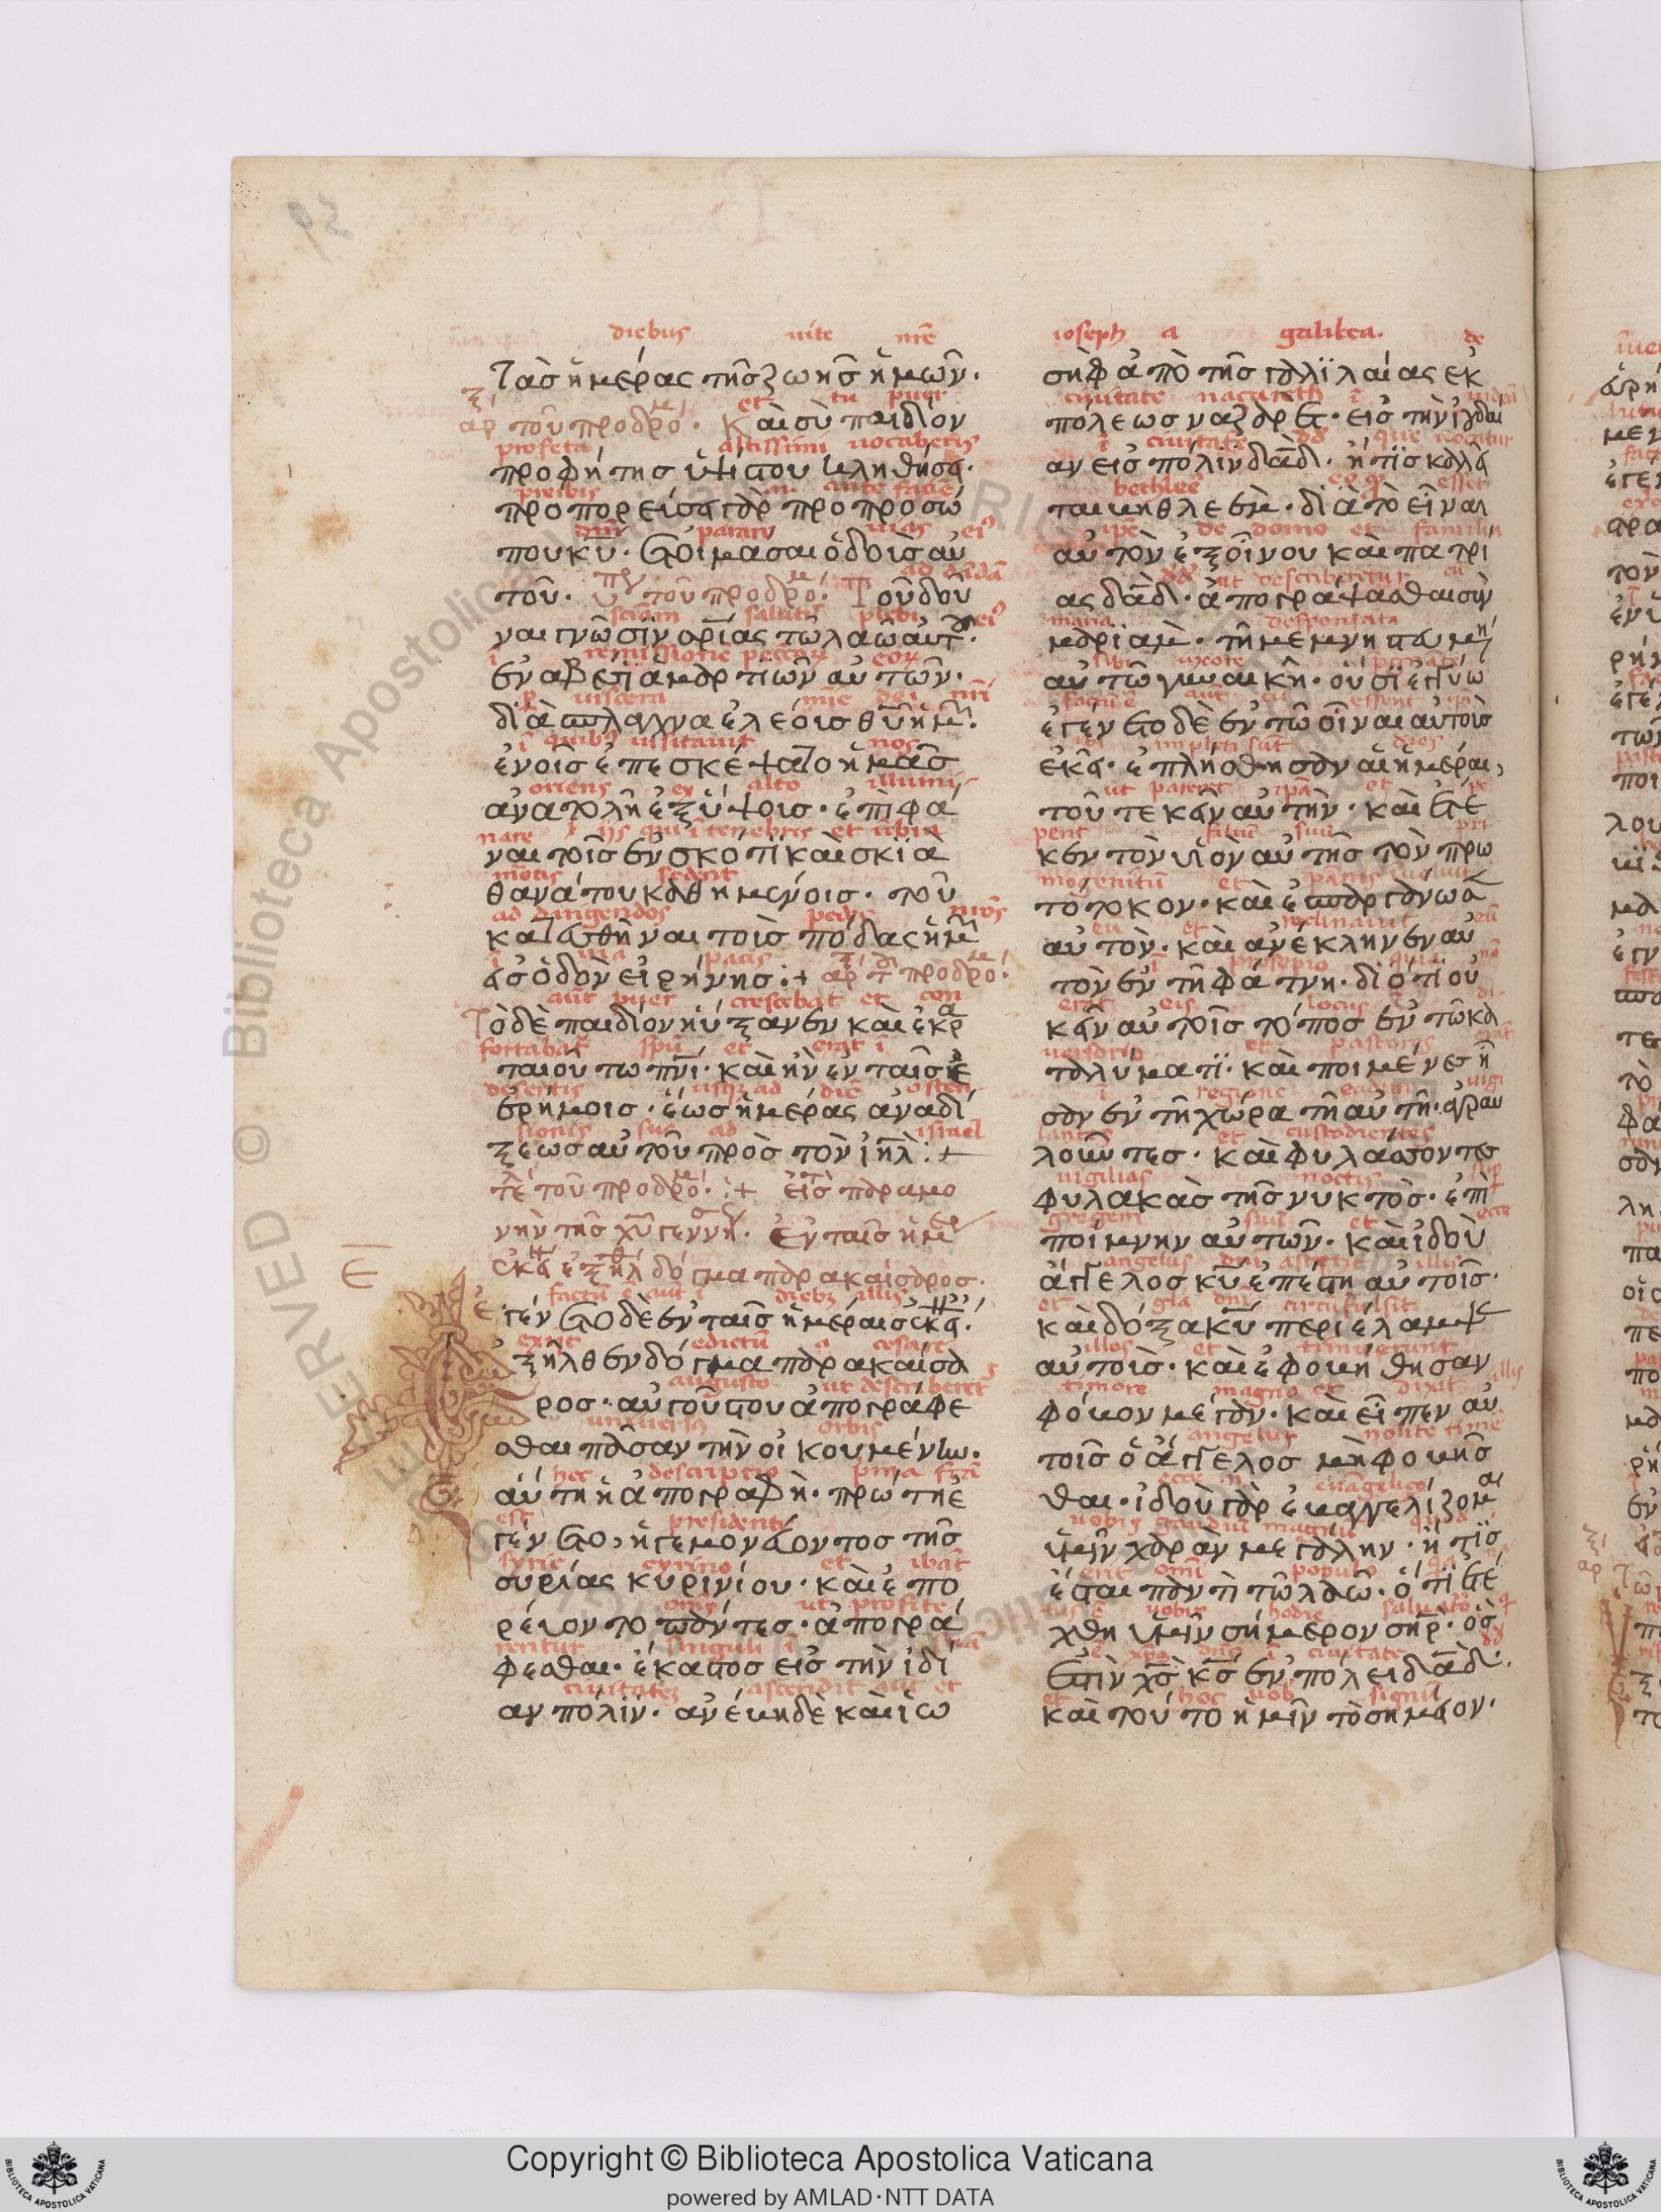 diebus uite nr̄e
Τὰσ ἡμέρας τῆσ ζωῆσ ἡμῶν.
et tu puer
τοῦ προδρο. Κ αὶ σὺ παιδίον
profeta altissimi uocaberis
προφήτησ ὑψίστου κληθήση.
preibis .n. ante faciē
προπορεύση γὰρ πρὸ προσώ
dn̄i parare uias ei9
που κ̄υ. ἑτοιμάσαι ὁδοὺσ αὐ
ad dādā
τοῦ. τοῦ προδρο. Τ οῦ δοῦ
sciām salutis plebi ei9
ναι γνῶσϊν σρ̄ίας τῶ λαῶ αὐτ.
remissione peccoꝝ eoꝝ
ἐν ἀφέσϊ ἁμαρτιῶν αὐτῶν.
p uiscera mīe dei nr̄i
διὰ σπλάγχνα ἐλέοισ θ̄υ ἡμ.
ī quib9 uisitauit nos
ἐν οἷσ ἐπεσκέψατο ἡμᾶσ
oriens ex alto illumi-
ἀνατολῆ ἐξ ὕψοισ. ἐπϊφᾶ
nare ijs qui ī tenebris et ūbra
ναι τοῖσ ἐν σκότϊ καὶ σκϊᾶ
motis sedent
θανάτου καθημένοισ. τοῦ
ad dirigendos pedes nr̄os
κατευθῆναι τοὶσ πόδας ἡμ
ī uia pacis
εἰσ ὁδὸν εἰρήνησ:+ προδρο.
aūt puer crescebat et con
Τὸ δὲ παιδίον ηὔξανεν καὶ ἐκρα
fortabat sp̄u et erat ī
ταιοῦτω π̄νι. καὶ ἦν ἐν ταῖσ ἐ
desertis usqꝫ ad diē osten-
ἐρήμοισ. ἕως ἡμέρας ἀναδί
sionis sue ad israel
ξεως αὐτοῦ πρὸσ τὸν ἰηλ:+
τοῦ προδρο.:+ εἰσ παραμο
νὴν τῆσ χ̄υ γεννή. Ἐν ταῖσ ἡμ
ἐκεί ἐξῆλ δόγμα παρα καίσαρος.
factū ē aūt ī diebꝫ illis
Ε
ἐγένετο δὲ ἐν ταῖσ ἡμέραισ ἐκεί.
exiit edictū a cesare
ξῆλθεν δόγμα παρα καίσα
augusto ut describeret
ρος. αὐγούστου ἀπογράφε
uniuersꝰ orbis
σθαι πᾶσαν τὴν οἰκουμένην.
hec descriptio pma fctā
αὕτη ἡ ἀπογραφὴ. πρώτη ἐ
est presidente
γένετο, ἡγεμονεύοντοσ τῆσ
syrie cyrino et ibāt
συρίας κυρινίου. καὶ ἐπο
omes ut profite-
ρεύοντο πάντεσ. ἀπογρά
rentur singuli ī suā
φεσθαι. ἕκαστοσ εἰσ τὴν ἰδί
ciuitateꝫ ascendit aūt et
αν πόλϊν. ἀνέβη δὲ καὶ ἰω
ioseph a galilea. de
σὴφ ἀπὸ τῆσ γαλϊλαίας ἐκ
ciuitate nacareth ī iudeā
πόλεωσ ναζαρετ. εἰσ τὴν ἰουδαί
ī ciuitate dd que uocatur
αν εἰσ πόλϊν δ̄αδ. ἥτϊσ καλεῖ
bethleē eo ꝙ esset
ται βηθλεὲμ. διὰ τὸ εἶναι
ipē de domo et familia
αὐτὸν ἐξ οἴκου καὶ πατρϊ
dd ut describeretur cū
ας δ̄αδ. ἀπογράψασθαι σὺν
maria desponsata
μαριὰμ. τῆ μεμνηστευμη
sibi uxore pregnate
αὐτῶ γυναικῆ. οὔσϊ ἐγγύω
factū ē aūt cū essent
ἐγένετο δὲ ἐν τῶ εἶναι αὐτοὶσ
ibi impleti sūt dies
ἐκεῖ. ἐπλήσθησαν αἱ ἡμέραι,
ut pareret ipā et pe
τοῦ τεκεῖν αὐτὴν. καὶ ἔτε
perit filiū suū pri-
κεν τὸν υἱὸν αὐτῆσ τὸν πρω
mogenitū et pānis
τότοκον. καὶ ἐσπαργάνωσ
eū et reclinauit eū
αὐτὸν. καὶ ἀνέκληνεν αὐ
ī presepio quia nō
τὸν ἐν τῆ φάτνη. διότϊ οὐ
erat eis locus ī di-
κεῖν αὐτοῖσ τόποσ ἐν τῶ κα
uersorio et pastores erāt
ταλύματϊ. καὶ ποιμένεσ ἦ
ī regione eadem uigi
σαν ἐν τῆ χώρα τῆ αὐτῆ. ἀγραυ
lantes et custodientes
λοῦντεσ. καὶ φυλάσσοντεσ
uigilias noctis sup
φυλακὰσ τῆσ νυκτὸσ. ἐπὶ
gregem suū et ecce
ποίμνην αὐτῶν. καὶ ἰδοὺ
angelus dn̄i astetit illis
ἄγγελοσ κ̄υ ἐπέστη αὐτοῖσ.
et gla dn̄i circūfulsit
καὶ δόξα κ̄υ περιέλαμψ
illos et timuerunt
αὐτοὶσ. καὶ ἐφοβήθησαν
timore magno et dixit illis
φόβον μέγαν. καὶ εἶπεν αὐ
angelus nolite time
τοῖσ ὁ ἄγγελοσ μὴ φοβῆσ
ecce .n. euāngelizo
θαι. ἰδοὺ γὰρ ἐυαγγελίζομαι
uobis gaudiū magnū quod
ὑμῖν χαρὰν μεγάλην. ἥτϊσ
erit omī populo qa
ἔσται παντὶ τῶ λαῶ. ὅτϊ ἐτέ
tus ē uobis hodie saluator q
χθη ὑμῖν σήμερον σηρ. ὅσ
ē xp̄s dn̄s ī ciuitate dd
ἐστὶν χ̄σ κ̄σ ἐν πόλει δ̄αδ.
et hoc uob signū
καὶ τοῦτο ἡμῖν τὸ σημεῖον.
Copyright © Biblioteca Apostolica Vaticana
powered by AMLAD·NTT DATA